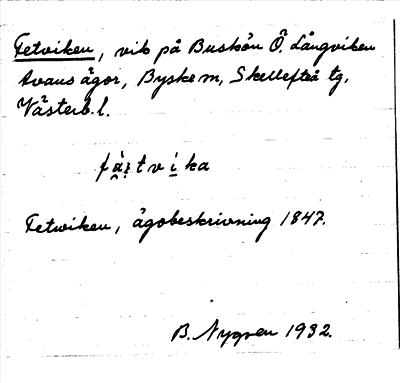 Fetviken, vik på Buskön Ö. Långviken
Avans ägor, Byske m, Skellefteå tg,
Västerb. l.
Fetwiken, ägobeskrivning 1847.
B. Nygren 1932.